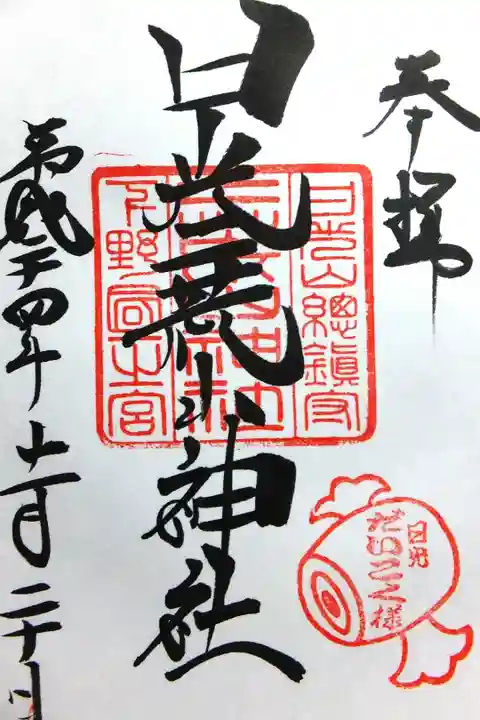 奉拝
日光山總鎮守
日光二荒山神社
二荒山神社
下野
宮
平成二十四年十一月二十日
日光
だいこく様